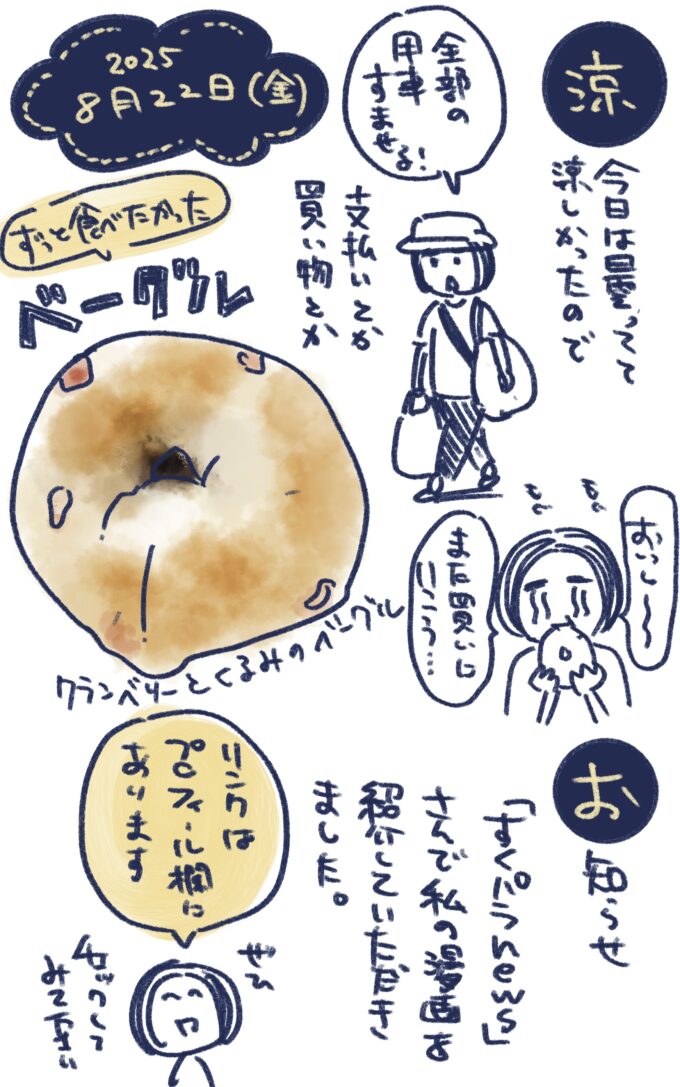 2025
8月22日(金)
涼
今日は曇ってて
涼しかったので
全部の
用事
すませる!
支払いとか
買い物とか
ずっと食べたかった
ベーグル
クランベリーとくるみのベーグル
おいし〜〜
もぐ
もぐ
また買いに
いこう…
お
知らせ
「すくパラnews」
さんで私の漫画を
紹介していただき
ました。
リンクは
プロフィール欄に
あります
ぜひ
チェックして
みて下さい